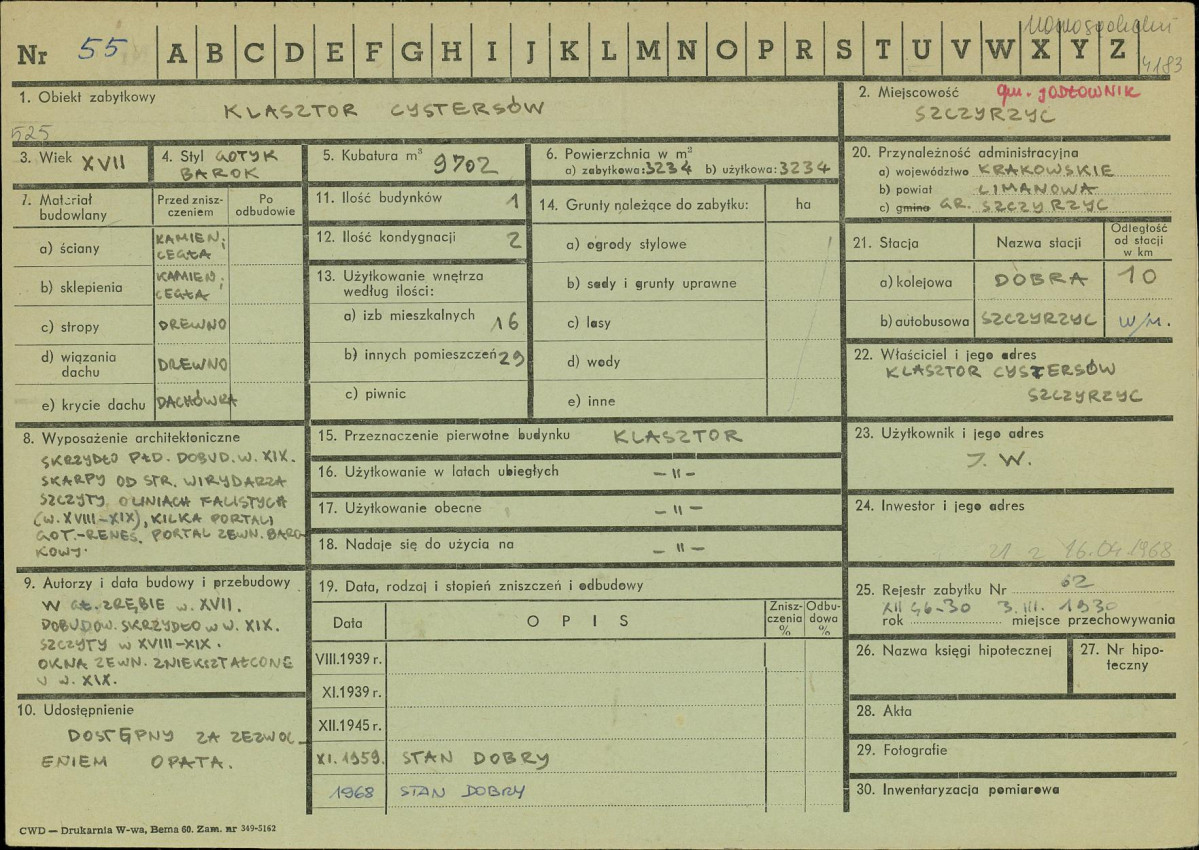 Nr 55 A B C D E F G H I J K L M N O P R S T U V W X Y Z
4183
1. Obiekt zabytkowy
KLASZTOR CYSTERSÓW
525
2. Miejscowość gm. JODŁOWNIK
SZCZYRZYC
3. Wiek XVII
4. Styl GOTYK
BAROK
5. Kubatura m³ 9702
6. Powierzchnia w m²
a) zabytkowa: 3234 b) użytkowa: 3234
7. Materiał budowlany
Przed znisz-
czeniem
Po
odbudowie
a) ściany KAMIEŃ; CEGŁA
b) sklepienia KAMIEŃ; CEGŁA
c) stropy DREWNO
d) wiązania dachu DREWNO
e) krycie dachu DACHÓWKA
8. Wyposażenie architektoniczne
SKRZYDŁO PŁD. DOBUD. W. XIX.
SKARPY OD STR. WIRYDARZA
SZCZYTY O LINIACH FALISTYCH
(W. XVIII-XIX), KILKA PORTALI
GOT.-RENES. PORTAL ZEWN. BARO
KOWY.
9. Autorzy i data budowy i przebudowy
W GŁ. ZRĘBIE W. XVII.
DOBUDOW. SKRZYDŁO W W. XIX.
SZCZYTY W XVIII-XIX.
OKNA ZEWN. ZNIEKSZTAŁCONE
W W. XIX.
10. Udostępnienie
DOSTĘPNY ZA ZEZWOL_
ENIEM OPATA.
11. Ilość budynków 1
12. Ilość kondygnacji 2
13. Użytkowanie wnętrza
według ilości:
a) izb mieszkalnych 16
b) innych pomieszczeń 29
c) piwnic
14. Grunty należące do zabytku: ha
a) ogrody stylowe
b) sady i grunty uprawne
c) lasy
d) wody
e) inne
15. Przeznaczenie pierwotne budynku KLASZTOR
16. Użytkowanie w latach ubiegłych - " -
17. Użytkowanie obecne - " -
18. Nadaje się do użycia na - " -
19. Data, rodzaj i stopień zniszczeń i odbudowy
Data OPIS Znisz-
czenia
% Odbu-
dowa
%
VIII.1939 r.
XI.1939 r.
XII.1945 r.
XI. 1959. STAN DOBRY
1968 STAN DOBRY
20. Przynależność administracyjna
a) województwo KRAKOWSKIE
b) powiat LIMANOWA
c) gmina GR. SZCZYRZYC
21. Stacja Nazwa stacji Odległość
od stacji
w km
a) kolejowa DOBRA 10
b) autobusowa SZCZYRZYC W/M.
22. Właściciel i jego adres
KLASZTOR CYSTERSÓW
SZCZYRZYC
23. Użytkownik i jego adres
J. W.
24. Inwestor i jego adres
21 z 16.04.1968
25. Rejestr zabytku Nr 62
XII 46-30 3. III. 1930
rok miejsce przechowywania
26. Nazwa księgi hipotecznej
27. Nr hipo-
teczny
28. Akta
29. Fotografie
30. Inwentaryzacja pomiarowa
CWD — Drukarnia W-wa, Bema 60. Zam. nr 349-5162